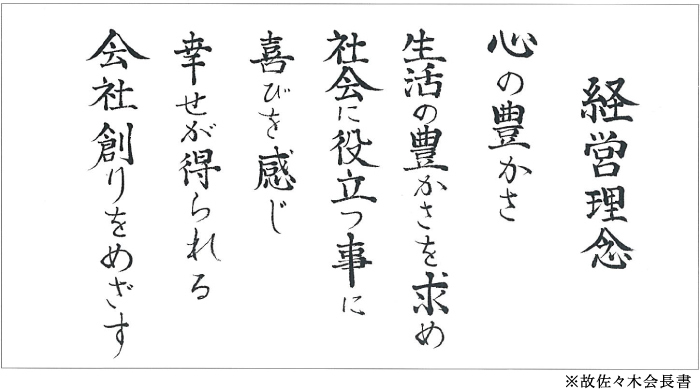 経営理念
心の豊かさ
生活の豊かさを求め
社会に役立つ事に
喜びを感じ
幸せが得られる
会社創りをめざす
※故佐々木会長書